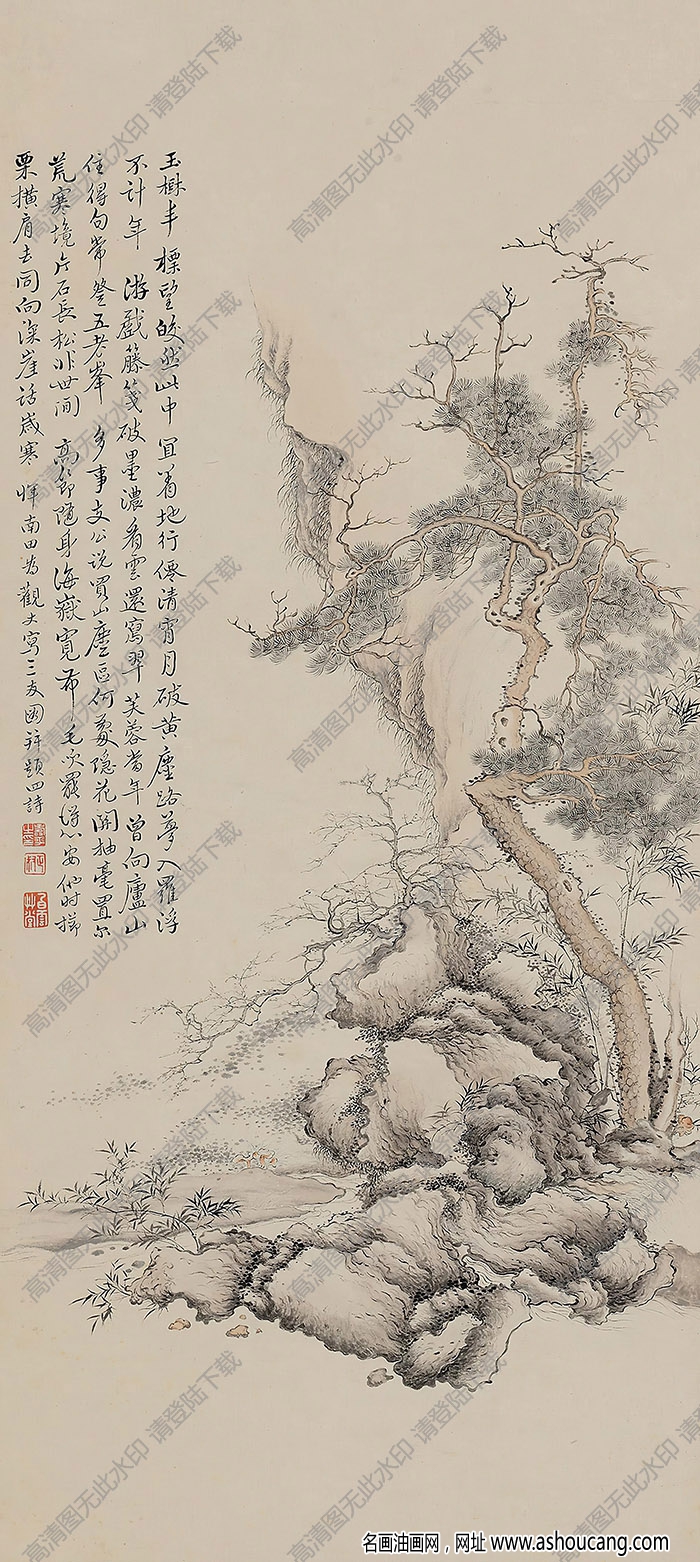 玉樹丰標望皎然此中宜着地行僊清宵月破黄塵路夢入羅浮
不計年 游戲籐箋破墨濃看雲還寫翠芙蓉當年曾向廬山
住得句常登五老峯 多事支公説買山塵區何處隐花關抽毫置尔
荒寒境片石長松非世間 高節随身海嶽寛布毛吹罷得心安他时擲
栗横肩去同向深崖話歲寒 惲南田為觀大寫三友圖并題四詩
高清图无此水印 请登陆下载
名画油画网，网址 www.ashoucang.com